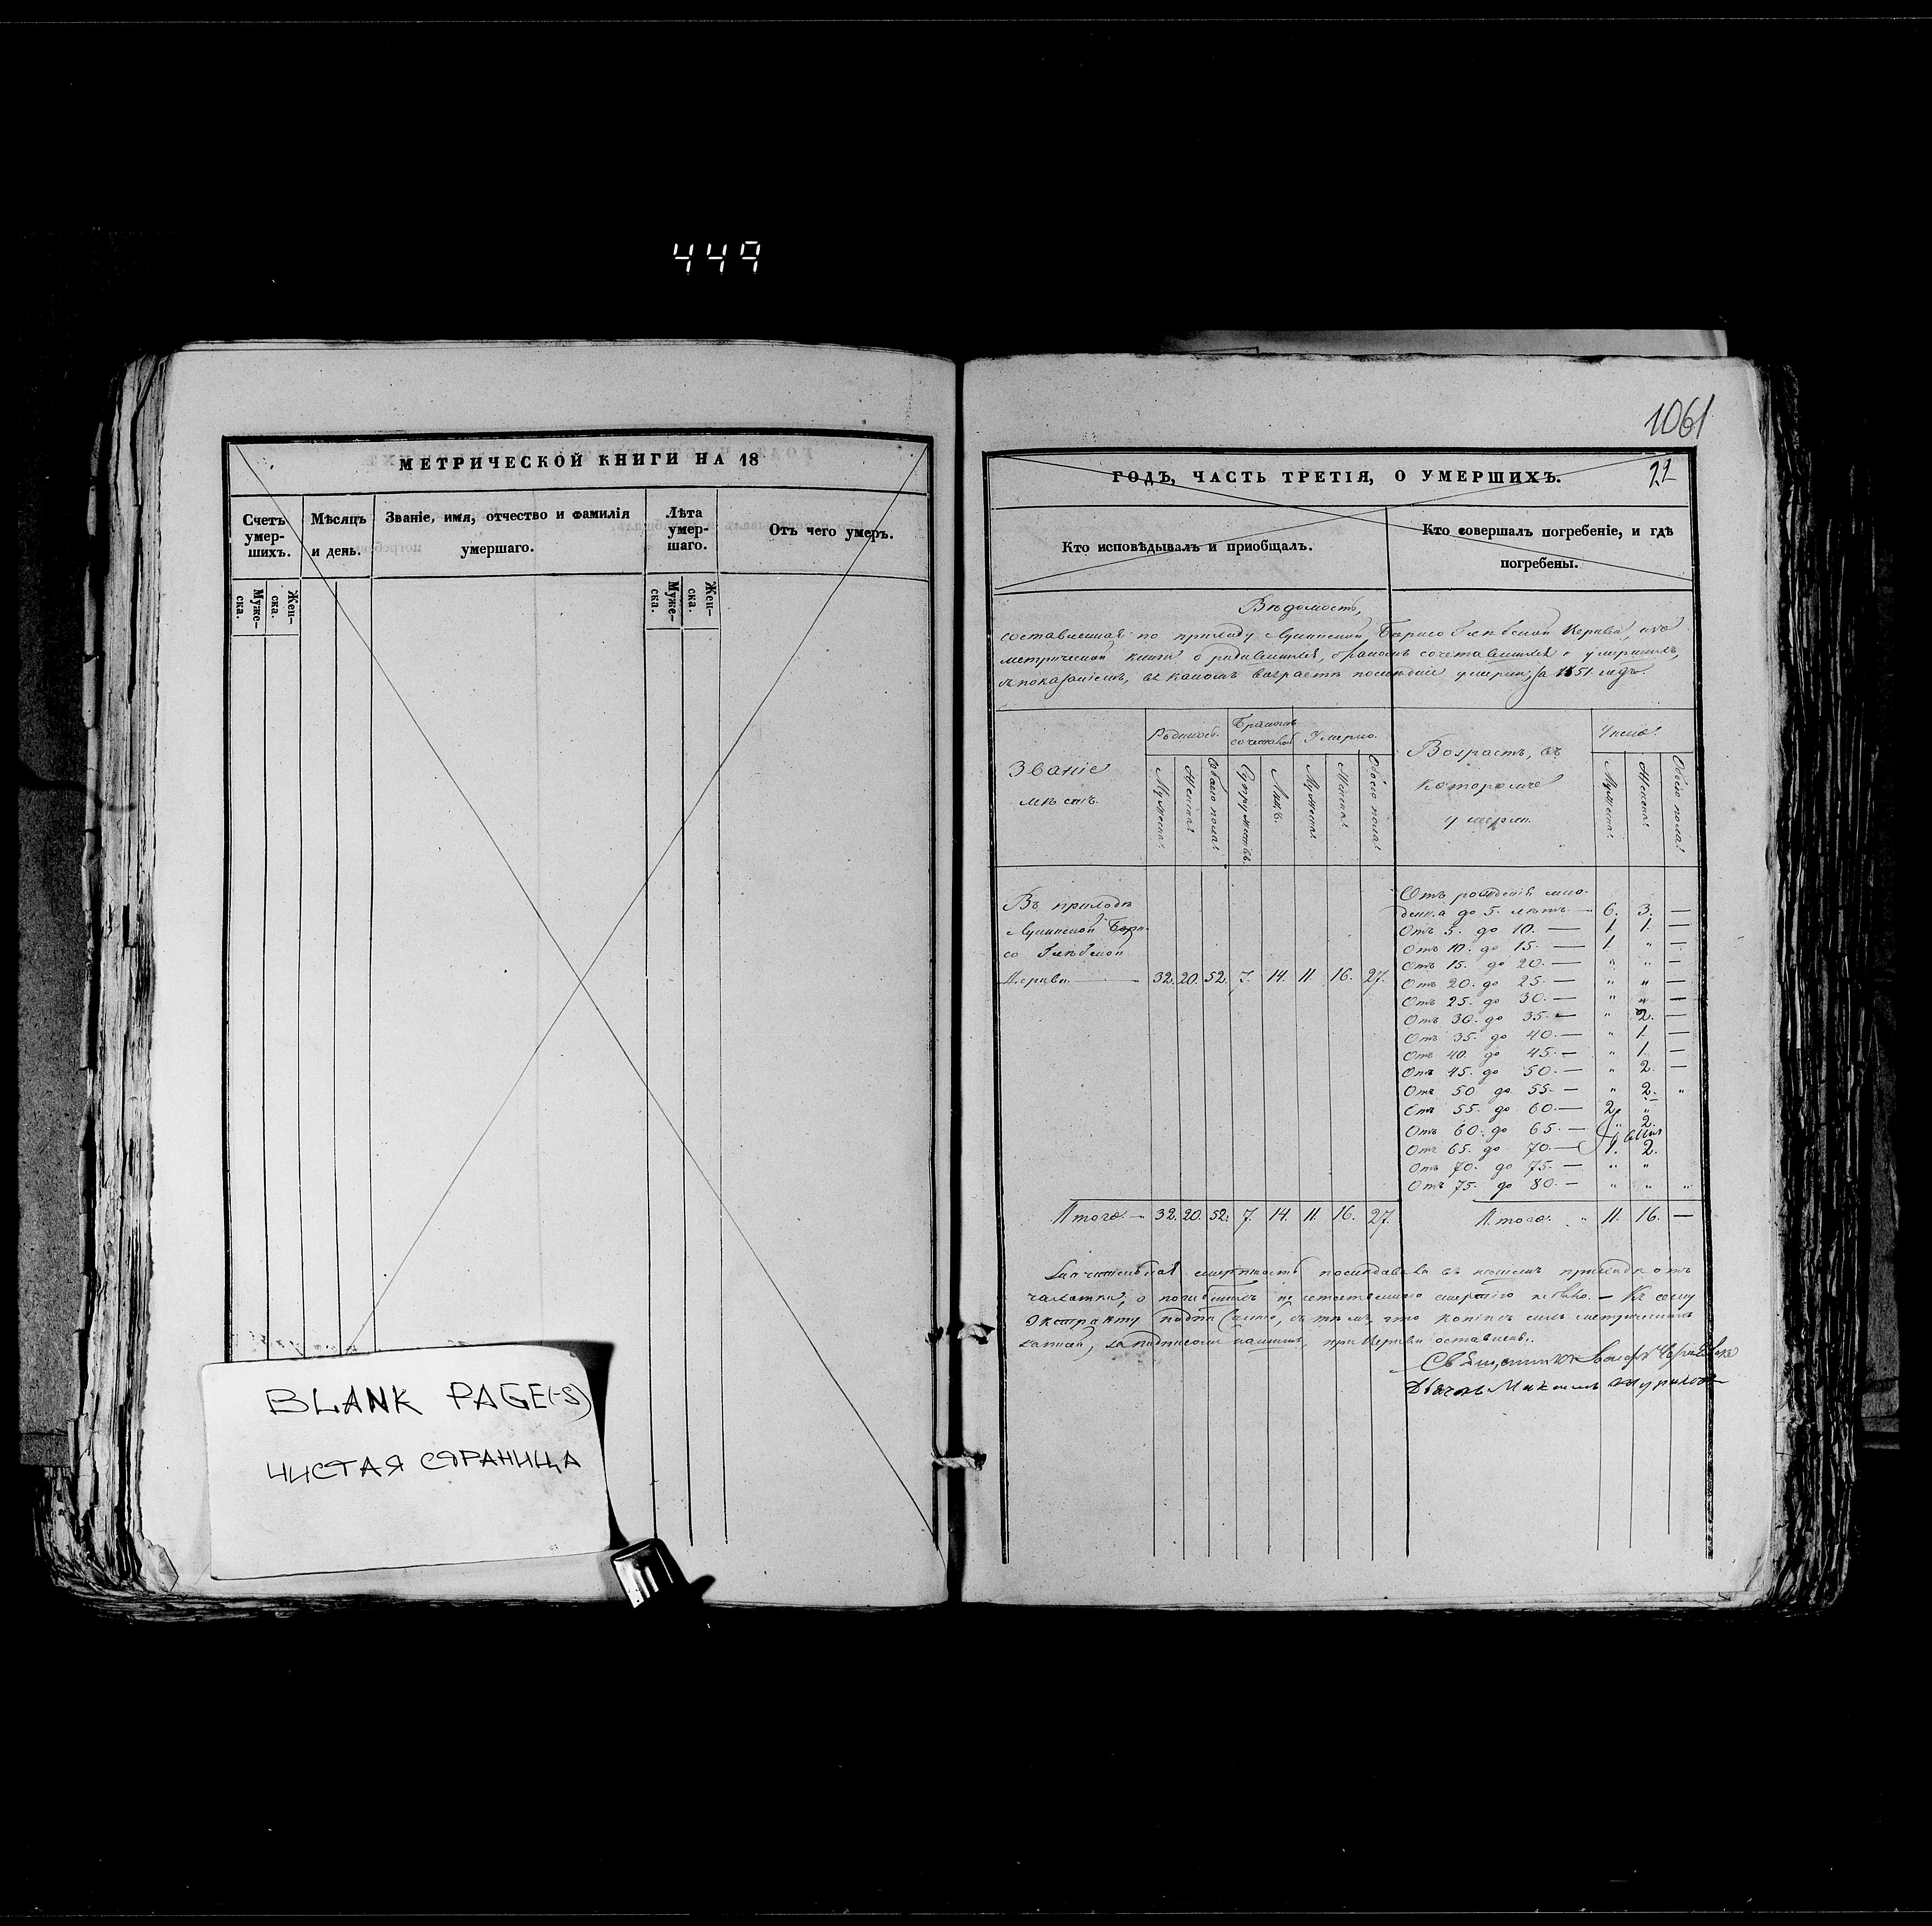 449
МЕТРИЧЕСКОЙ КНИГИ НА 18
Счетъ умер-шихъ.
Муже-ска.
Жен-ска.
Мѣсяцъ и день.
Званіе, имя, отчество и фамилія умершаго.
Лѣта умер-шаго.
Муже-ска.
Жен-ска.
Отъ чего умеръ.
BLANK PAGE(-S)
ЧИСТАЯ СТРАНИЦА
1061
ГОДЪ, ЧАСТЬ ТРЕТІЯ, О УМЕРШИХЪ.
22
Кто исповѣдывалъ и приобщалъ.
Кто совершалъ погребеніе, и гдѣ погребены.
Вѣдомость,
составленная по приходу Борисоглѣбской Церкви, изъ
метрической книги о родившихся, бракомъ сочетавшихся и умершихъ,
съ показаніемъ, въ какомъ возрастѣ послѣдніе умерли, за 1851 годъ.
Званіе мѣстъ.
Родилось.
Мужеска.
Женска.
Обоего пола.
Бракомъ сочеталось
Супружествъ.
Лицъ.
Умерло.
Мужеска.
Женска.
Обоего пола.
Возрастъ, въ которомъ умерли.
Число.
Мужеска.
Женска.
Обоего пола.
Въ приходѣ
Бори-
со Глѣбской
Церкви — 32. 20. 52. 7. 14. 11. 16. 27.
Отъ рожденія мла-
денца до 5. лѣтъ — 6. 3. —
Отъ 5. до 10. — 1. 1. —
Отъ 10. до 15. — 1. " —
Отъ 15. до 20. — " " —
Отъ 20. до 25. — " " —
Отъ 25. до 30. — " " —
Отъ 30. до 35. — " 2. —
Отъ 35. до 40. — " 1. —
Отъ 40. до 45. — " 1. —
Отъ 45. до 50. — " 2. —
Отъ 50 до 55. — " 2. "
Отъ 55. до 60. — 2. "
Отъ 60. до 65. — " 2.
Отъ 65. до 70. — 1. 2.
Отъ 70. до 75. — " "
Отъ 75. до 80. — " " "
Итого. — 32. 20. 52. 7. 14. 11. 16. 27.
Итого. " 11. 16. —
смертность въ нашемъ приходѣ отъ
чахотки, о погибшихъ смертію — Къ сему
экстракту съ тѣмъ, что копія съ сихъ метрическихъ
за подписомъ нашимъ, при Церкви оставлена.
Священникъ
Дьячокъ Максимъ